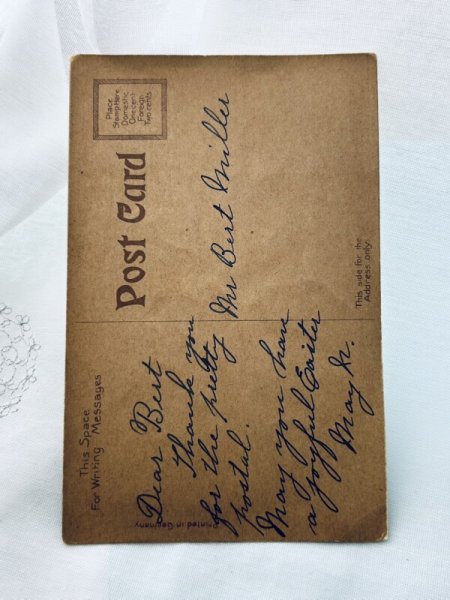 This Space
For Writing Messages
Post Card
Place
Stamp Here
Domestic
One cent
Foreign
Two cents
Dear Bert
Thank you
for the pretty
postal.
May you have
a joyful Easter
May N.
Mr Bert Miller
This side for the
Address only.
Printed in Germany